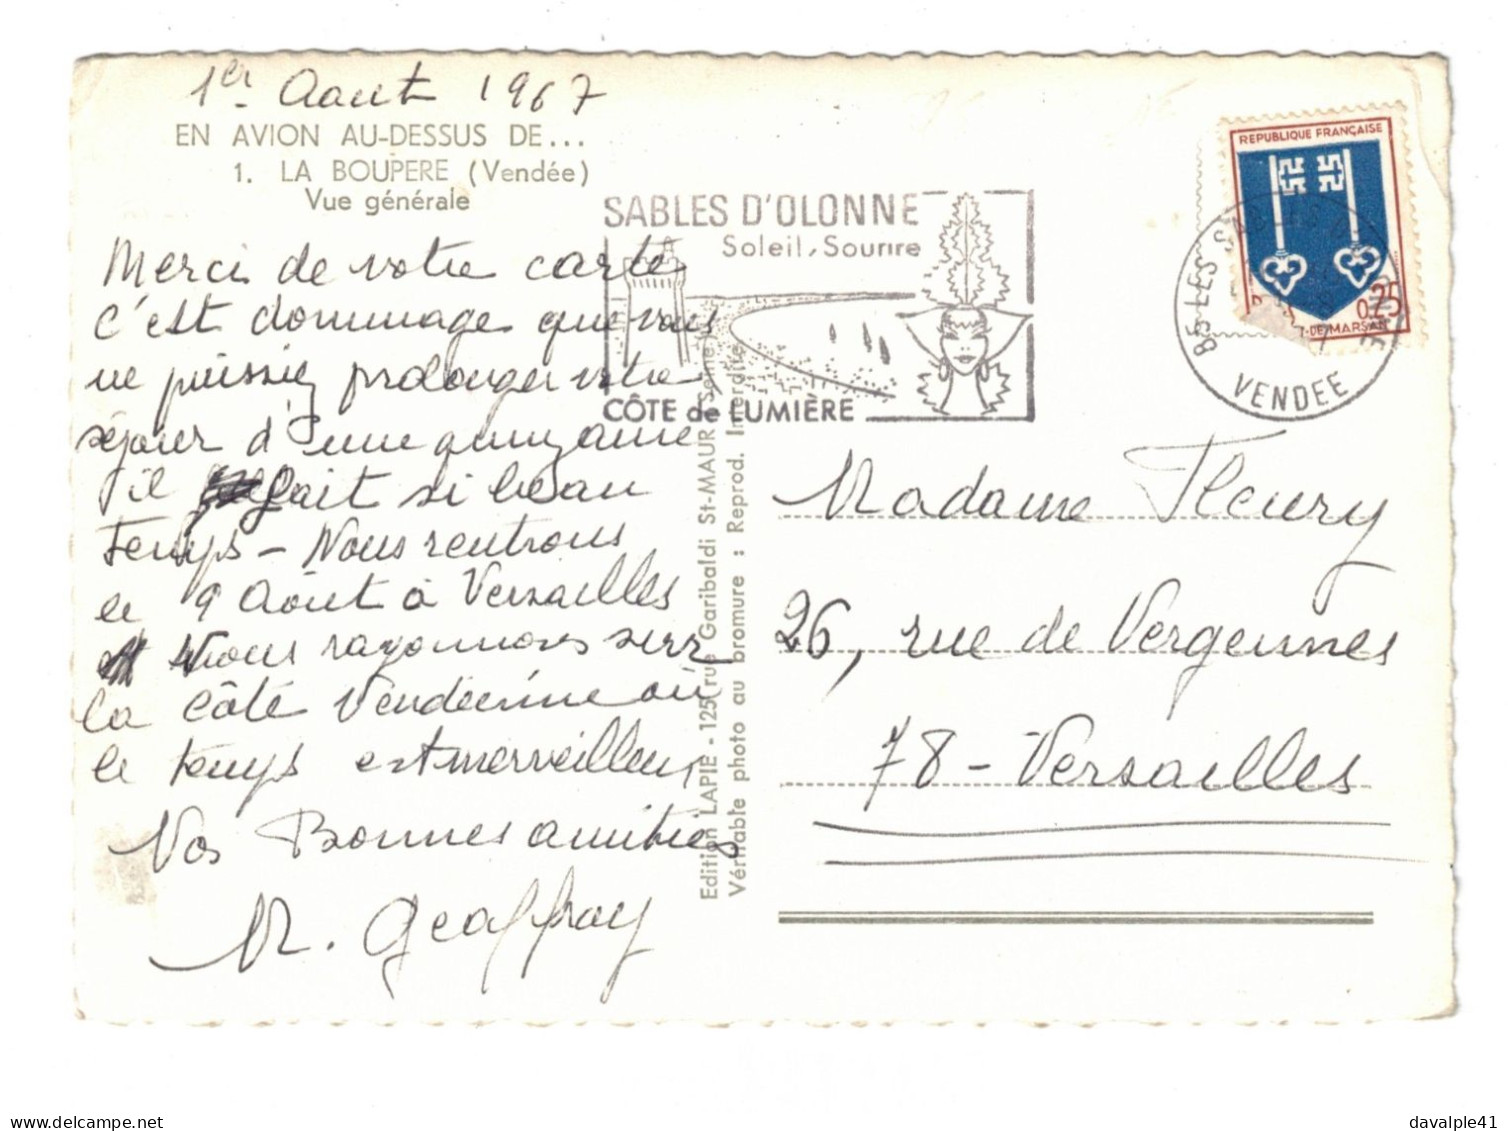 1er Aout 1967
EN AVION AU-DESSUS DE...
1. LA BOUPERE (Vendée)
Vue générale
Merci de votre carte
c'est dommage que vous
ne puissiez prolonger votre
séjour d'une quinzaine
il fait si beau
temps - Nous rentrons
le 9 Août à Versailles
Nous rayonnons sur
la Côte Vendéenne où
le temps est merveilleux
Vos Bonnes amitiés
M. Geoffray
Edition LAPIE - 125, rue Garibaldi St-MAUR (Seine)
Véritable photo au bromure : Reprod. Interdite
SABLES D'OLONNE
Soleil, Sourire
CÔTE de LUMIÈRE
REPUBLIQUE FRANÇAISE
0,25
T-DE-MARSAN
85 LES S
VENDEE
Madame Fleury
26, rue de Vergennes
78 - Versailles
davalple41
delcampe.net